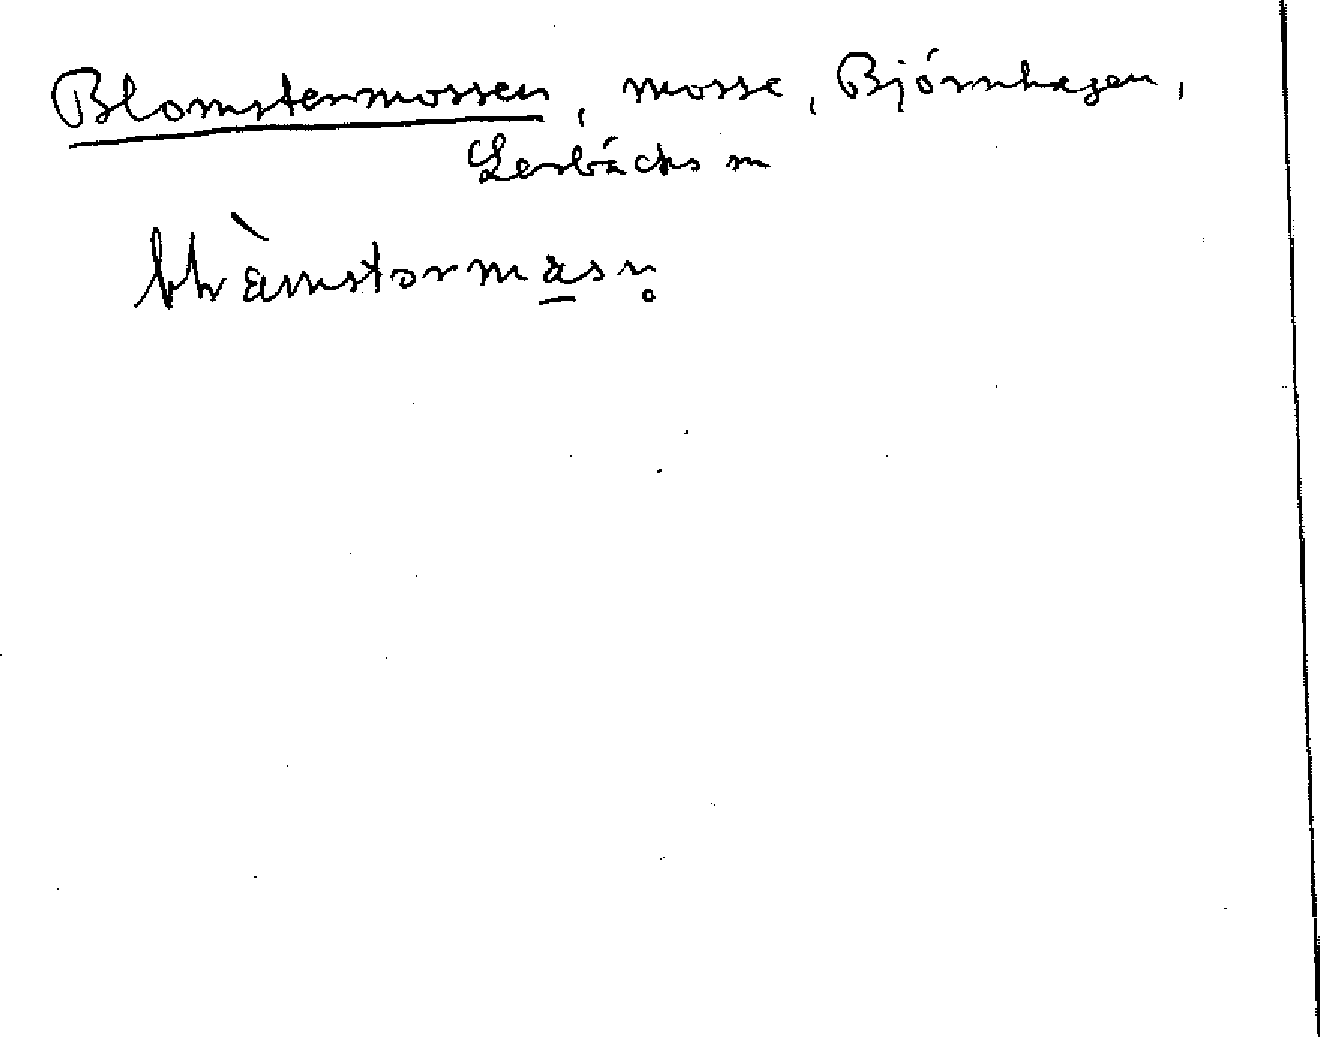 Blomstermossen, mosse, Björnhagen,
Lerbäcks sn